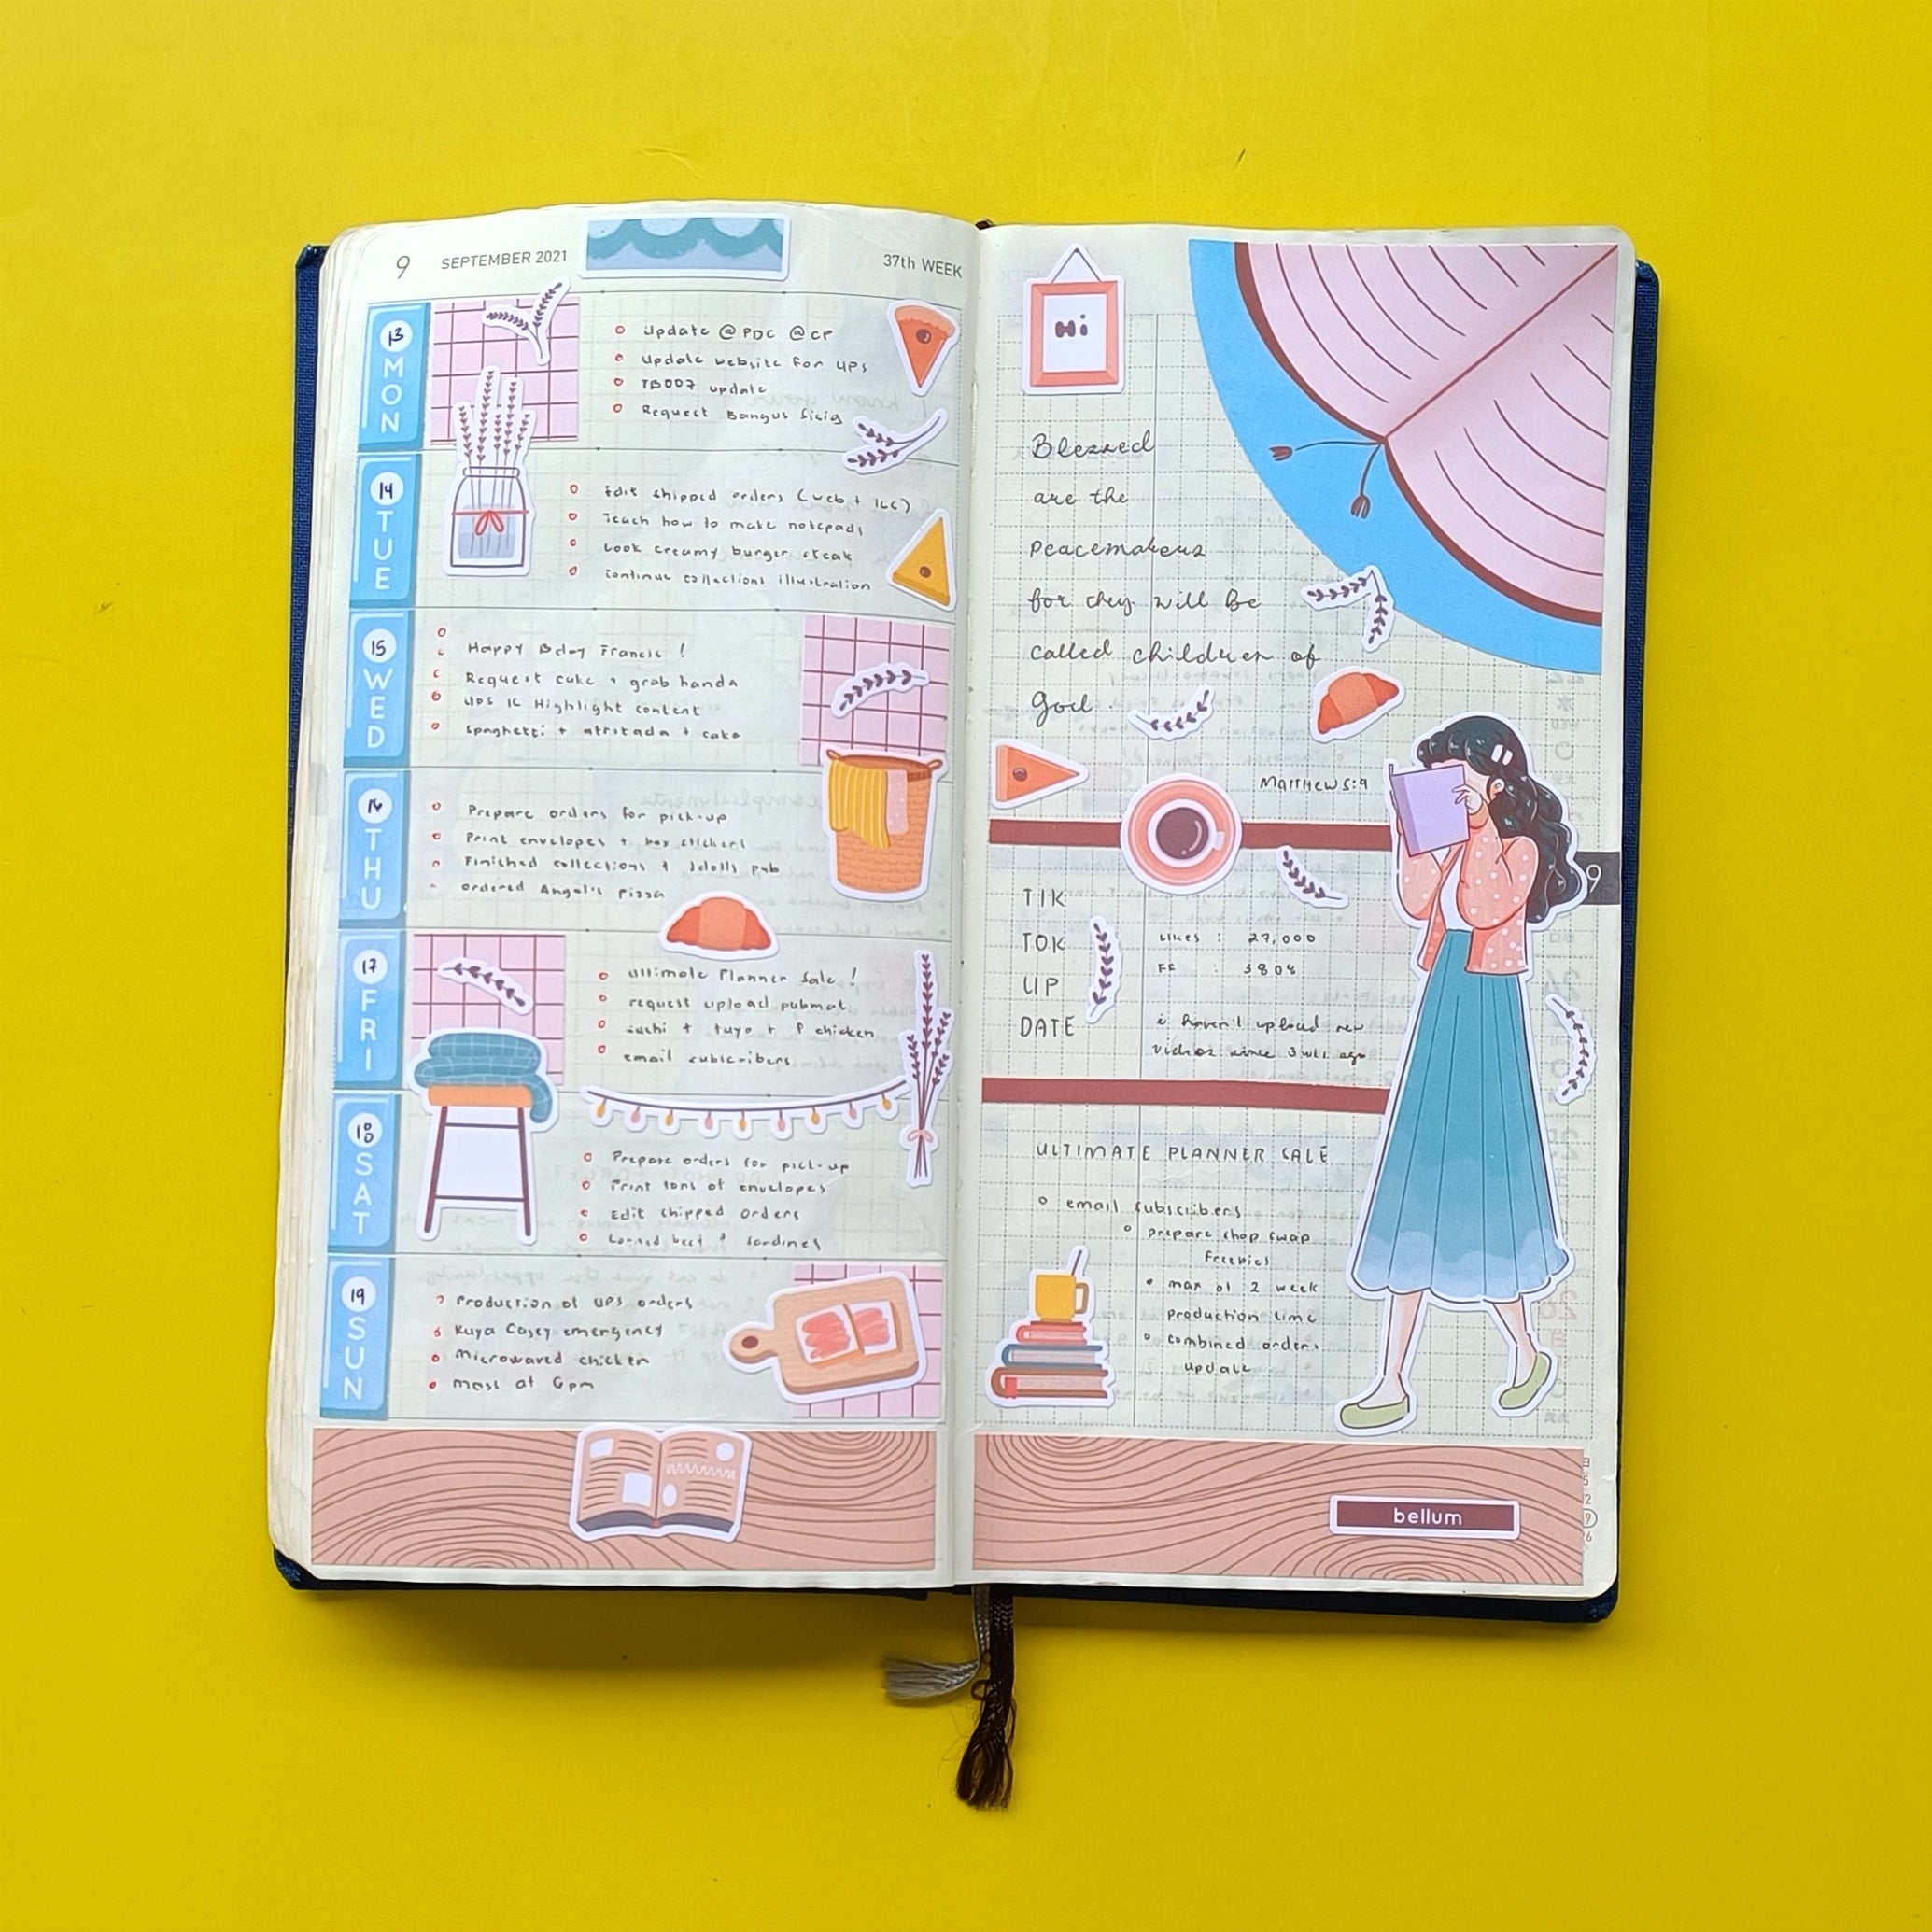 9 SEPTEMBER 2021
37th WEEK
13
MON
Update @ PDC @ CP
Update website for UPS
TB007 update
Request Bangus Sisig
14
TUE
Edit shipped orders (web +
Teach how to make notepads
Cook creamy burger steak
Continue collections illustration
15
WED
Happy Bday Francis !
Request cake + grab handa
UPS IG Highlight content
Spaghetti + afritada + cake
16
THU
Prepare orders for pick-up
Print envelopes + box stickers
Finished collections + pub
ordered Angel's Pizza
17
FRI
Ultimate Planner Sale !
request upload pubmat
sushi + tuyo + P chicken
email subscribers
18
SAT
Prepare orders for pick-up
Print tons of envelopes
Edit shipped orders
Corned beef + Sardines
19
SUN
Production of UPS orders
Kuya Casey emergency
Microwaved chicken
mass at 6pm
Hi
Blessed
are the
Peacemakers
for they will be
called children of
God.
MATTHEW 5:9
9
TIK
TOK
UP
DATE
Likes : 27,000
FF : 3808
i haven't upload new
videos since 3 wks ago
ULTIMATE PLANNER SALE
email subscribers
prepare shop swap
Freebies
max of 2 week
production time
combined orders
update
bellum